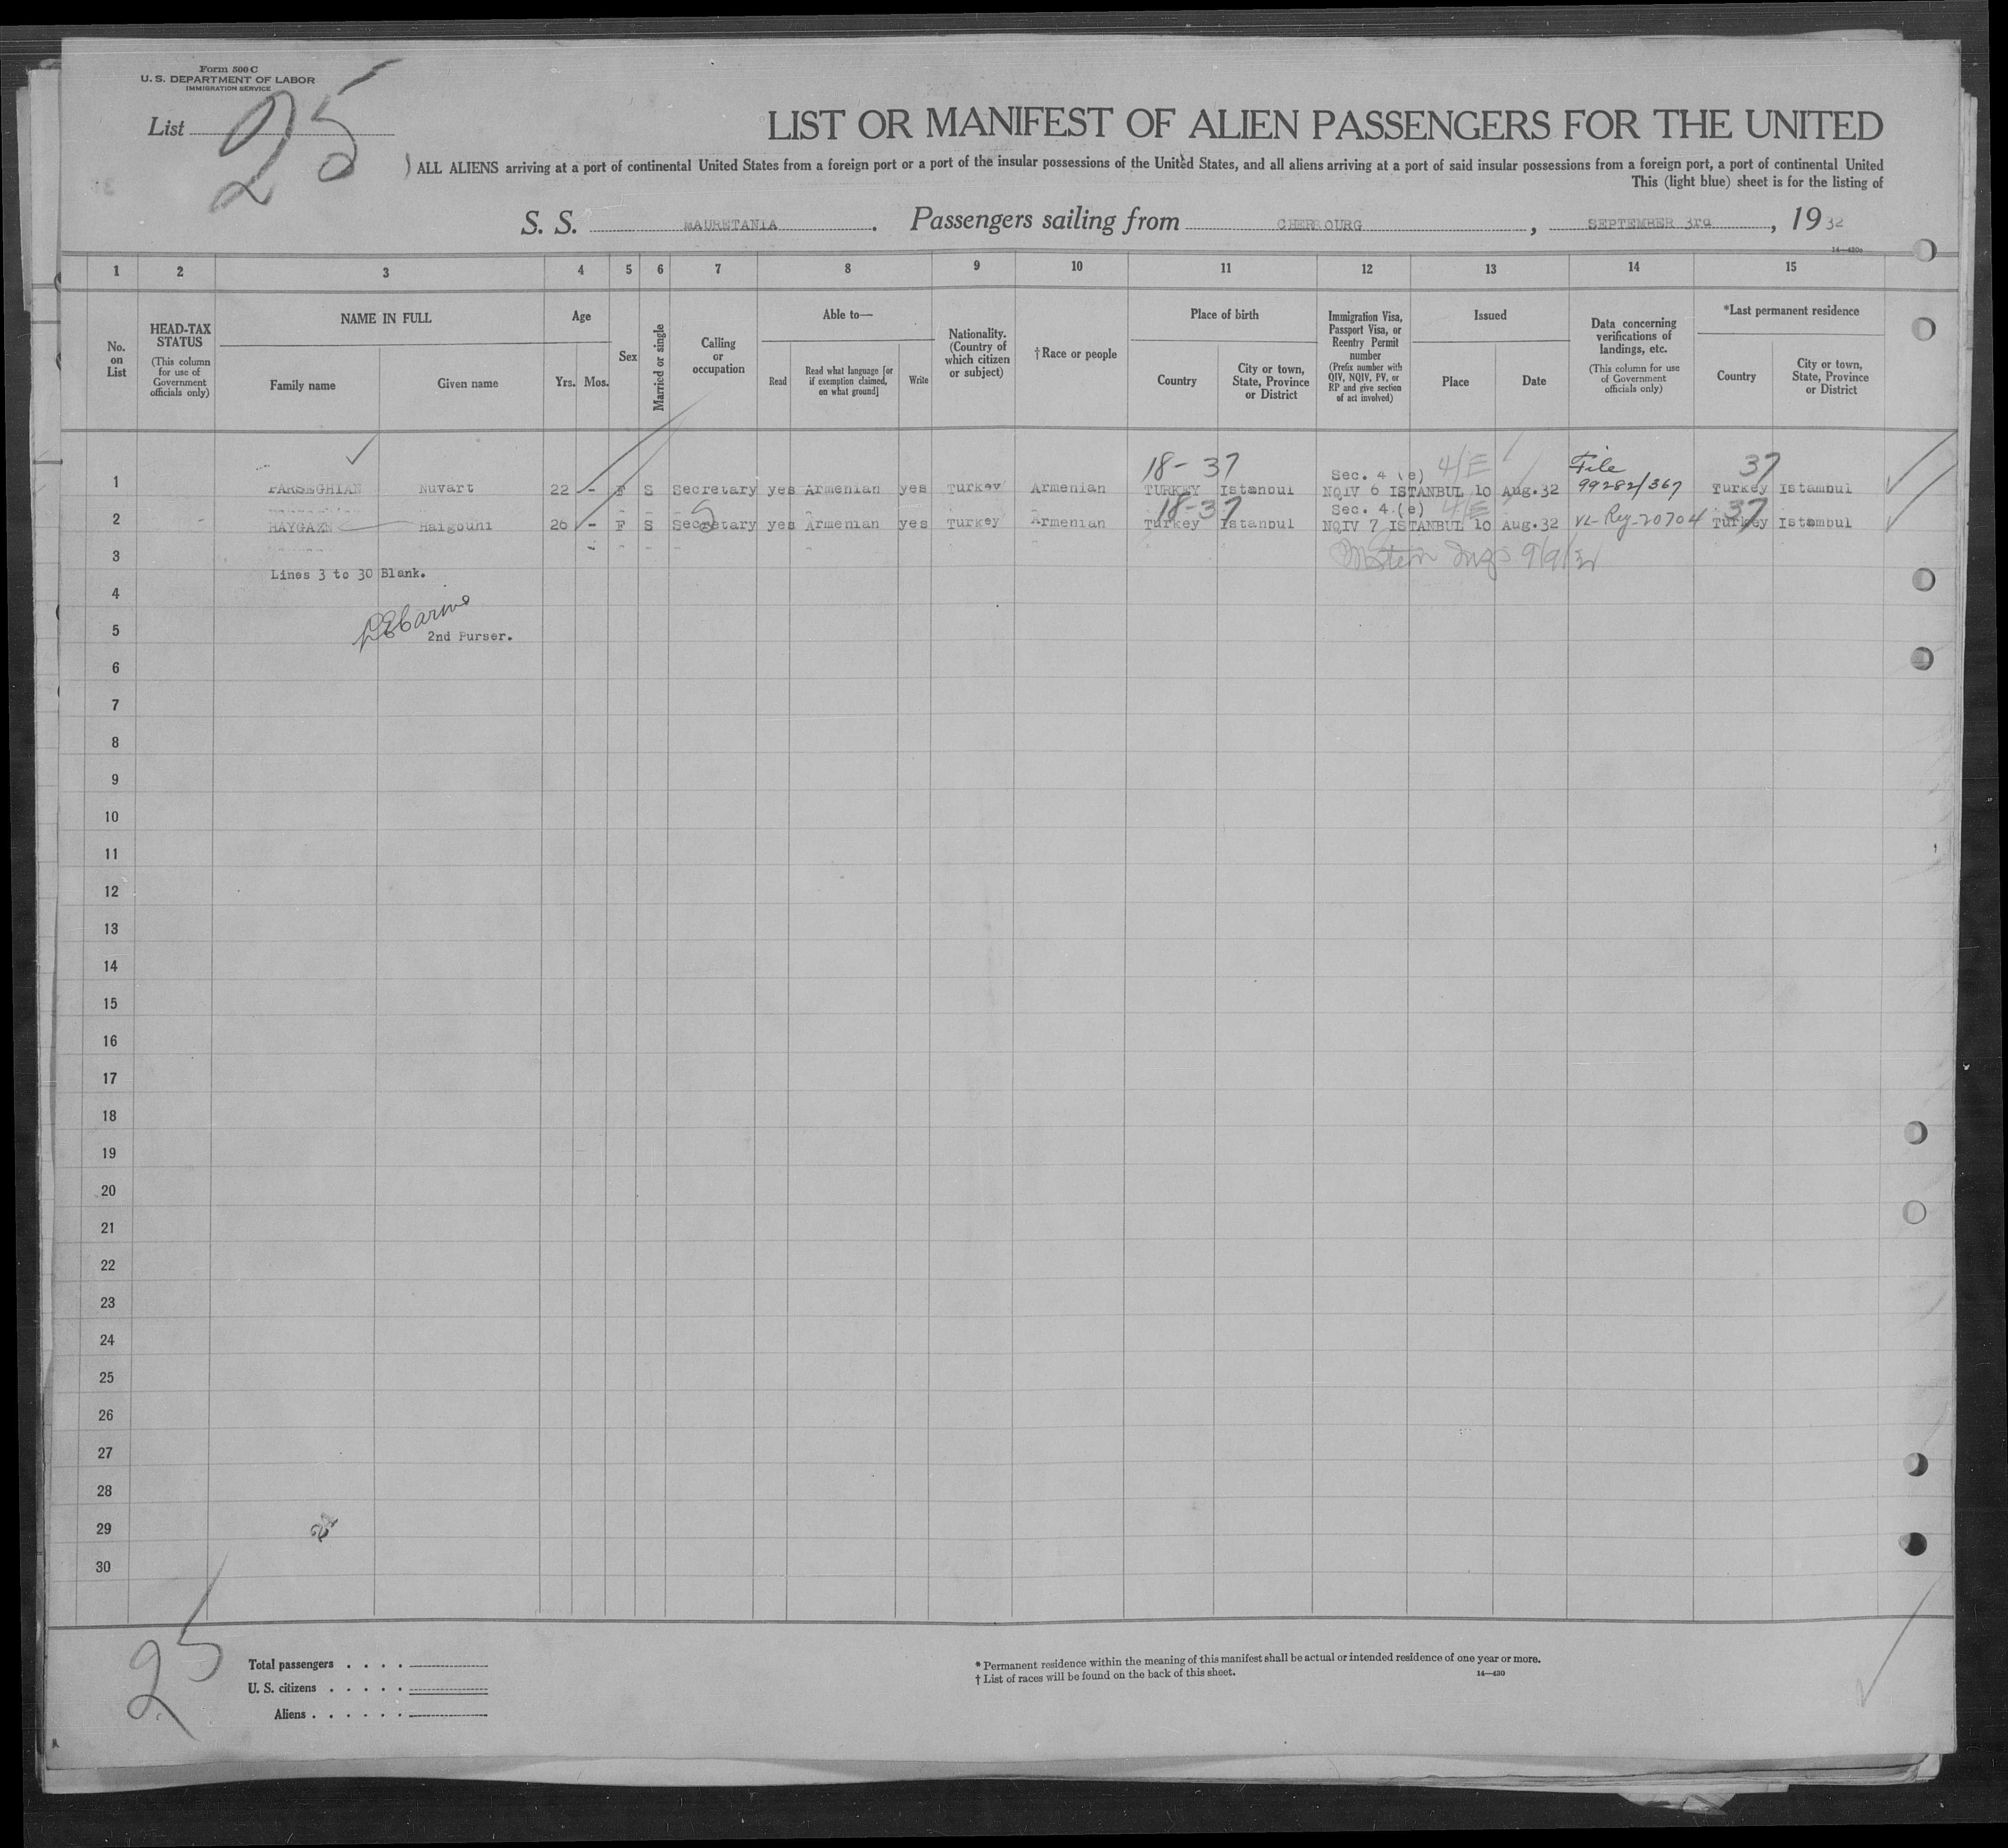 Form 500 C
U. S. DEPARTMENT OF LABOR
IMMIGRATION SERVICE
List 25
LIST OR MANIFEST OF ALIEN PASSENGERS FOR THE UNITED
ALL ALIENS arriving at a port of continental United States from a foreign port or a port of the insular possessions of the United States, and all aliens arriving at a port of said insular possessions from a foreign port, a port of continental United
This (light blue) sheet is for the listing of
S. S. MAURETANIA. Passengers sailing from CHERBOURG, SEPTEMBER 3rd, 1932
14—430a
1 2 3 4 5 6 7 8 9 10 11 12 13 14 15
No. on List
HEAD-TAX STATUS (This column for use of Government officials only)
NAME IN FULL
Family name
Given name
Age
Yrs. Mos.
Sex
Married or single
Calling or occupation
Able to—
Read
Read what language [or if exemption claimed, on what ground]
Write
Nationality. (Country of which citizen or subject)
† Race or people
Place of birth
Country
City or town, State, Province or District
Immigration Visa, Passport Visa, or Reentry Permit number (Prefix number with QIV, NQIV, PV, or RP and give section of act involved)
Issued
Place
Date
Data concerning verifications of landings, etc. (This column for use of Government officials only)
*Last permanent residence
Country
City or town, State, Province or District
18-37 Sec. 4 (e) 4/E File 37
1 PARSEGHIAN Nuvart 22 - F S Secretary yes Armenian yes Turkey Armenian TURKEY Istanbul NQIV 6 ISTANBUL 10 Aug.32 99282/367 Turkey Istambul
18-37 Sec. 4 (e) 4/E 37
2 HAYGAZN Haigouhi 26 - F S Secretary yes Armenian yes Turkey Armenian Turkey Istanbul NQIV 7 ISTANBUL 10 Aug.32 VL-Reg-20704 Turkey Istambul
3 9/9/32
Lines 3 to 30 Blank.
4
5
2nd Purser.
6
7
8
9
10
11
12
13
14
15
16
17
18
19
20
21
22
23
24
25
26
27
28
29
30
25
Total passengers
U. S. citizens
Aliens
* Permanent residence within the meaning of this manifest shall be actual or intended residence of one year or more.
† List of races will be found on the back of this sheet.
14—430